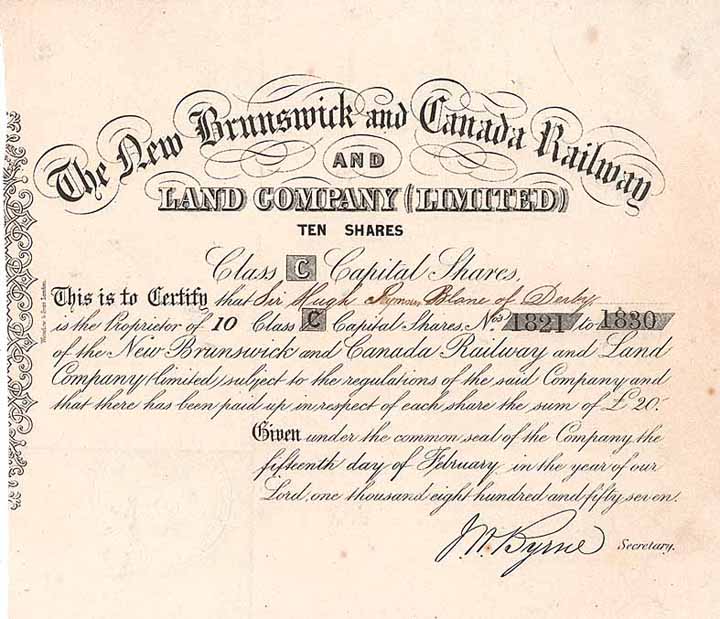 The New Brunswick and Canada Railway
AND
LAND COMPANY (LIMITED)
TEN SHARES
Class C Capital Shares.
This is to Certify that Sir Hugh Seymour Blane of Derby
is the Proprietor of 10 Class C Capital Shares, Nos 1821 to 1830
of the New Brunswick and Canada Railway and Land
Company (limited) subject to the regulations of the said Company and
that there has been paid up in respect of each share the sum of £20.
Given under the common seal of the Company the
fifteenth day of February in the year of our
Lord, one thousand eight hundred and fifty seven.
J. W. Byrne Secretary.